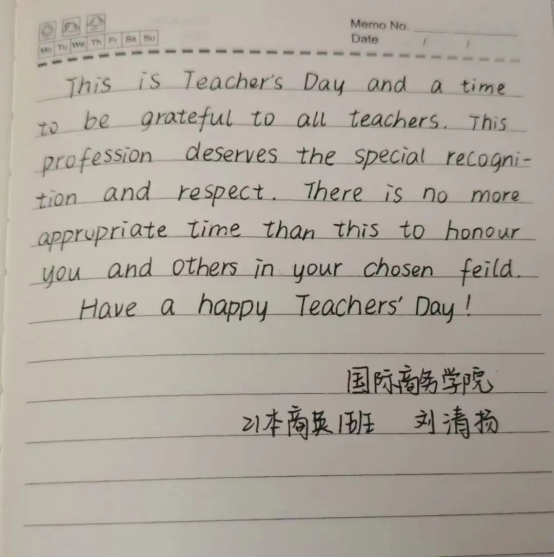 Memo No.
Mo Tu We Th Fr Sa Su
Date / /
This is Teacher's Day and a time
to be grateful to all teachers. This
profession deserves the special recogni-
tion and respect. There is no more
appropriate time than this to honour
you and others in your chosen feild.
Have a happy Teachers' Day!
国际商务学院
21本商英1班 刘清扬